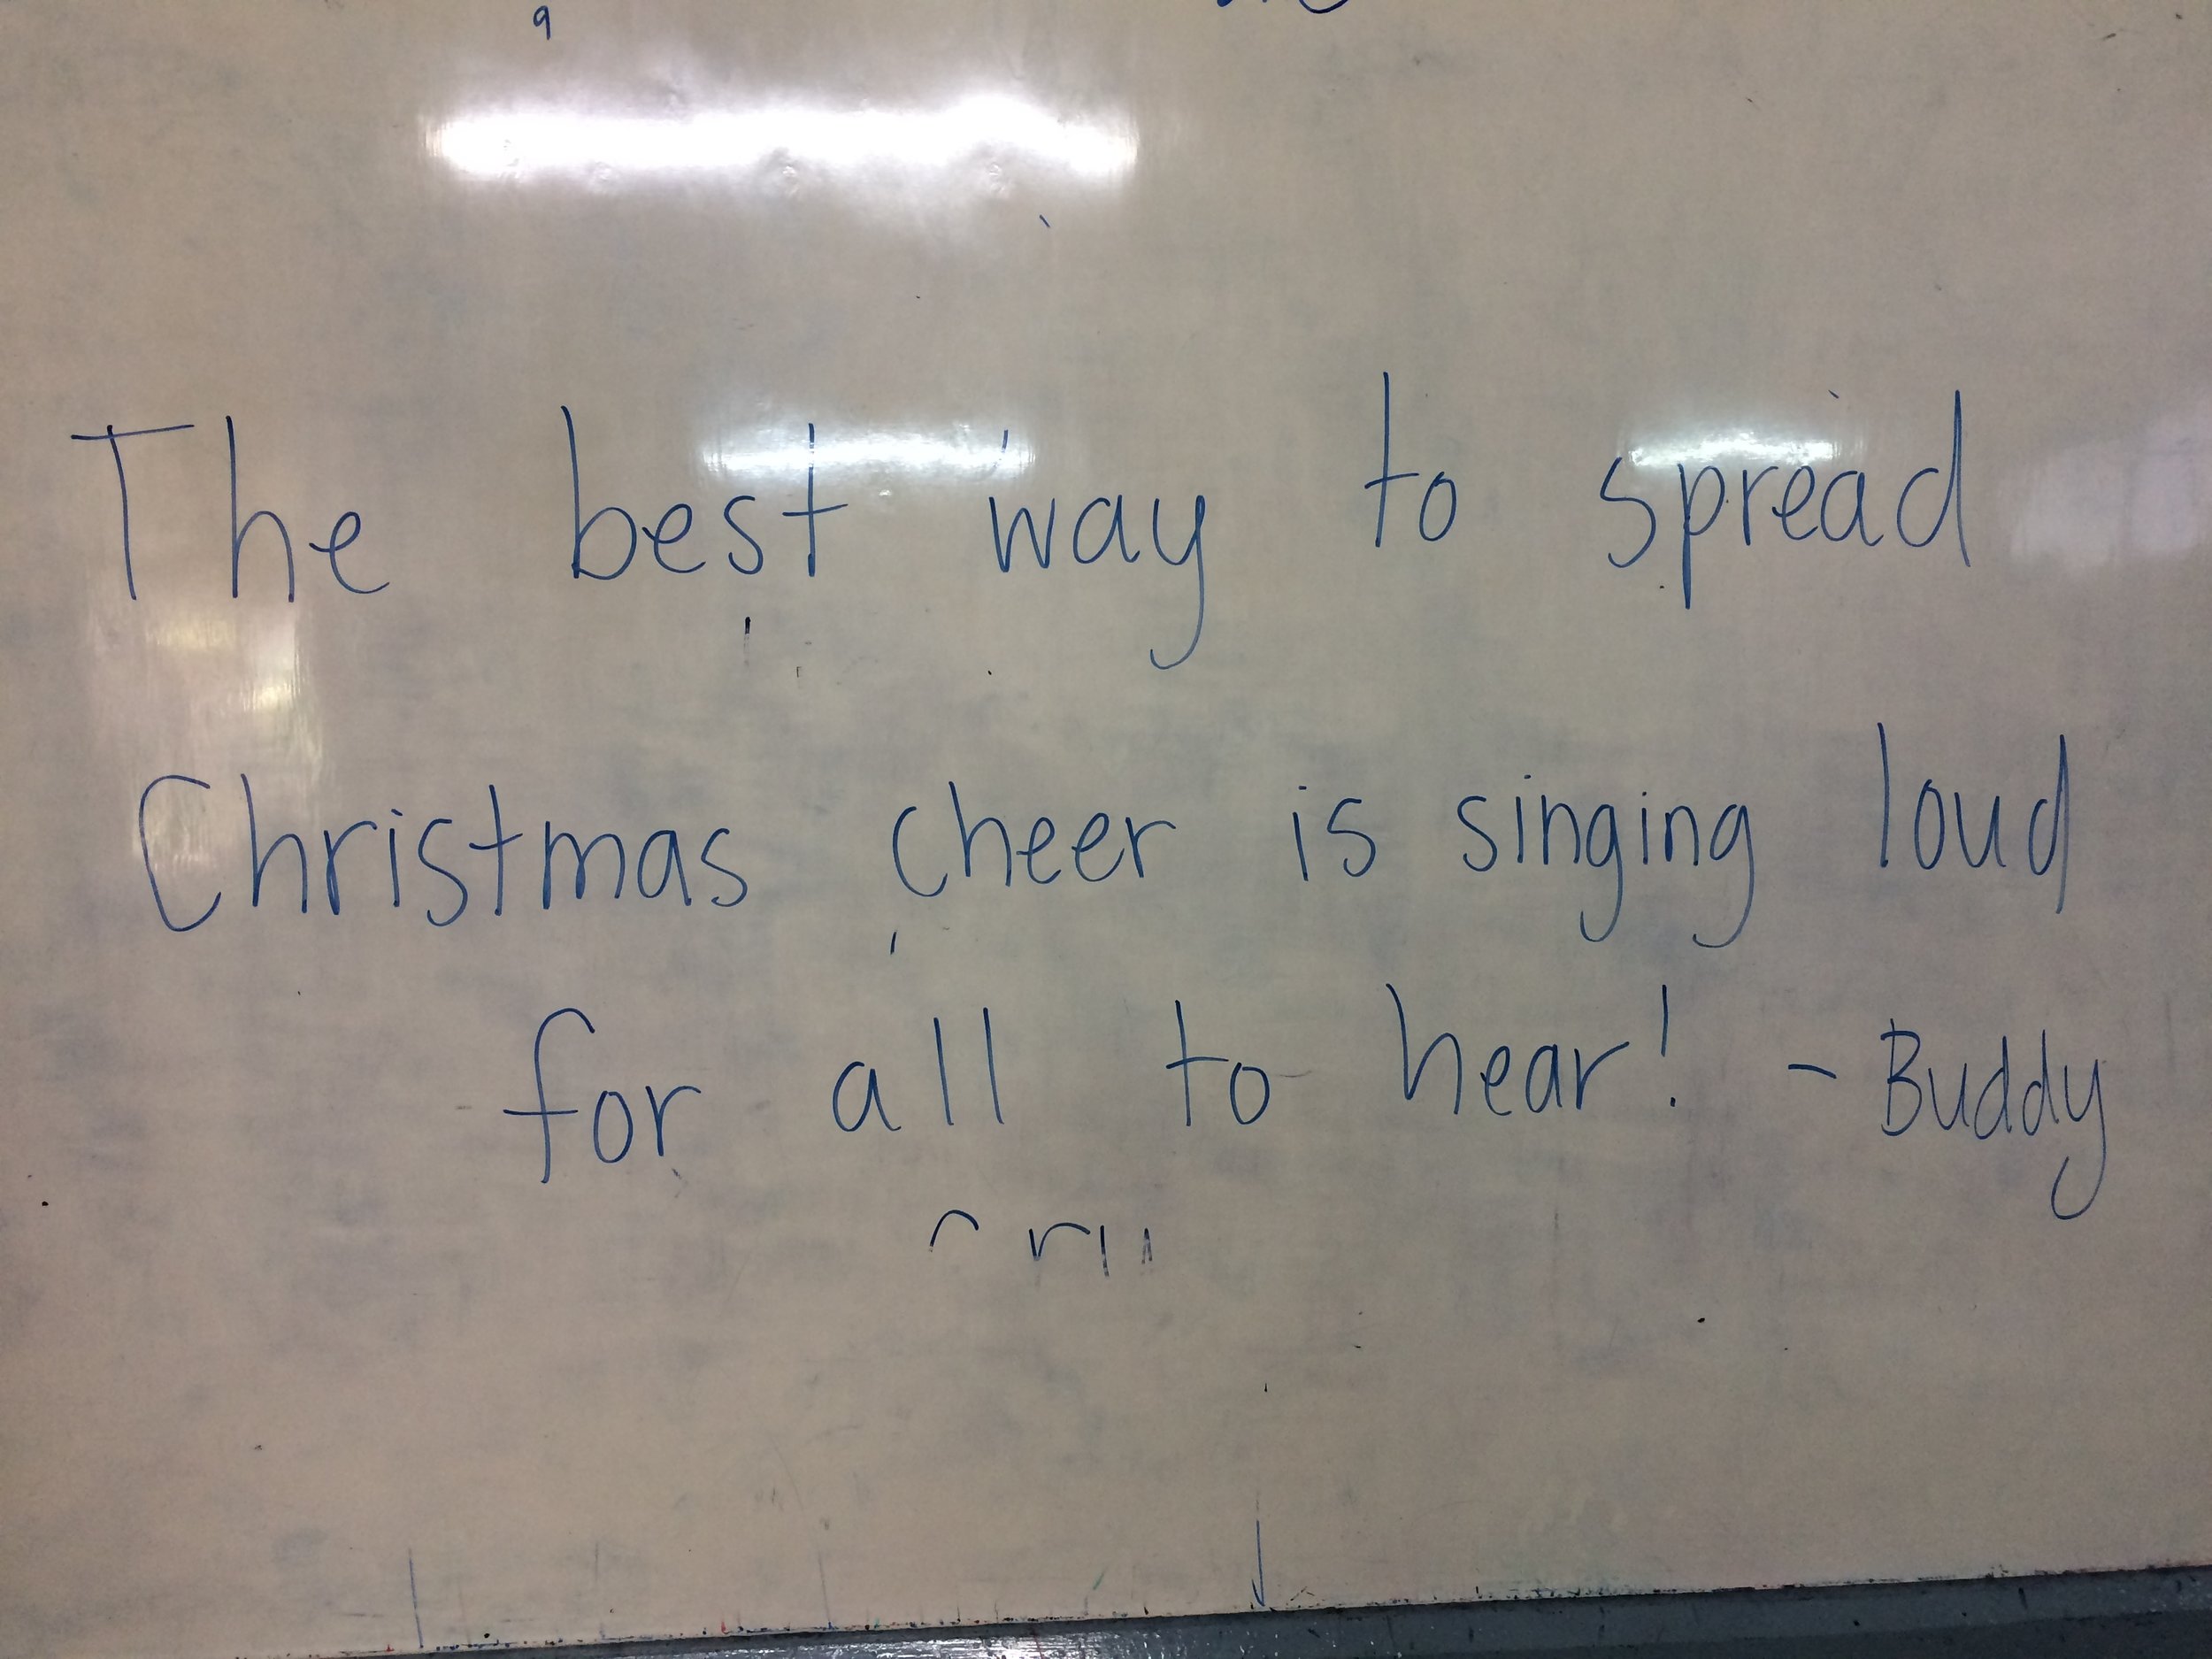 The best way to spread
Christmas cheer is singing loud
for all to hear! - Buddy